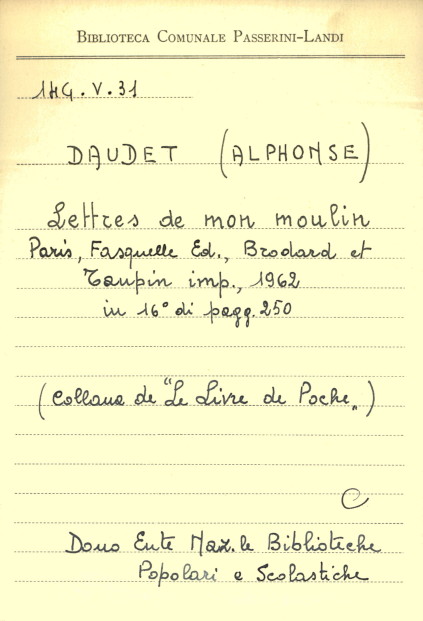 BIBLIOTECA COMUNALE PASSERINI-LANDI
1HG.V.31
DAUDET (ALPHONSE)
Lettres de mon moulin
Paris, Fasquelle Ed., Brodard et
Taupin imp., 1962
in 16° di pagg. 250
(Collana de "Le Livre de Poche„)
C
Dono Ente Naz.le Biblioteche
Popolari e Scolastiche